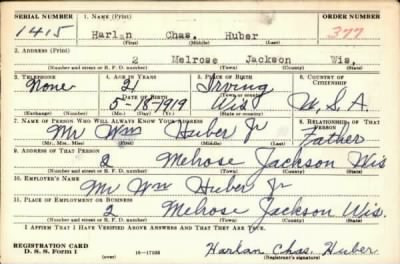 SERIAL NUMBER 1. NAME (Print) ORDER NUMBER
1415 Harlan Chas. Huber 377
(First) (Middle) (Last)
2. ADDRESS (Print)
2 Melrose Jackson Wis,
(Number and street or R. F. D. number) (Town) (County) (State)
3. TELEPHONE 4. AGE IN YEARS 5. PLACE OF BIRTH 6. COUNTRY OF CITIZENSHIP
None 21 Irving
DATE OF BIRTH (Town or county)
5-18-1919 Wis U.S.A.
(Exchange) (Number) (Mo.) (Day) (Yr.) (State or country)
7. NAME OF PERSON WHO WILL ALWAYS KNOW YOUR ADDRESS 8. RELATIONSHIP OF THAT PERSON
Mr Wm Huber Jr Father
(Mr., Mrs., Miss) (First) (Middle) (Last)
9. ADDRESS OF THAT PERSON
2 Melrose Jackson Wis
(Number and street or R. F. D. number) (Town) (County) (State)
10. EMPLOYER'S NAME
Mr Wm Huber Jr
11. PLACE OF EMPLOYMENT OR BUSINESS
2 Melrose Jackson Wis.
(Number and street or R. F. D. number) (Town) (County) (State)
I AFFIRM THAT I HAVE VERIFIED ABOVE ANSWERS AND THAT THEY ARE TRUE.
REGISTRATION CARD
D. S. S. Form 1 (over) Harlan Chas. Huber
(Registrant's signature)